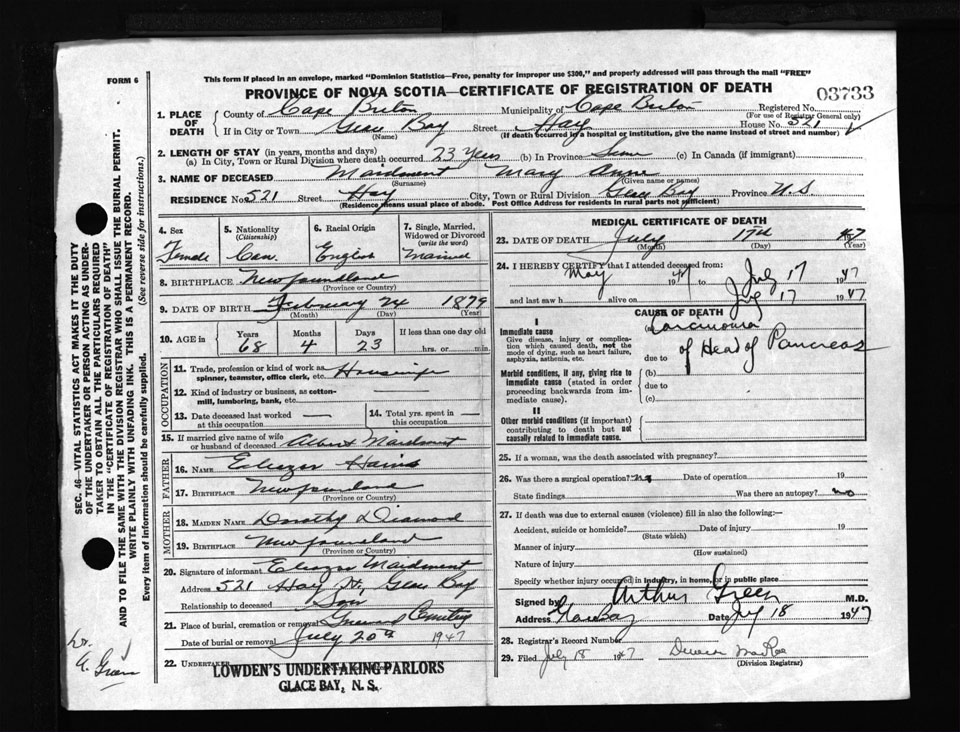 FORM 6
This form if placed in an envelope, marked "Dominion Statistics—Free, penalty for improper use $300," and properly addressed will pass through the mail "FREE"
PROVINCE OF NOVA SCOTIA—CERTIFICATE OF REGISTRATION OF DEATH
03733
1. PLACE OF DEATH { County of Cape Breton Municipality of Cape Breton Registered No.
(For use of Registrar General only)
If in City or Town Glace Bay Street Hay House No. 521
(Name) (If death occurred in a hospital or institution, give the name instead of street and number)
2. LENGTH OF STAY (in years, months and days)
(a) In City, Town or Rural Division where death occurred 23 Years (b) In Province Same (c) In Canada (if immigrant)
3. NAME OF DECEASED Maidment Mary Anne
(Surname) (Given name or names)
RESIDENCE No. 521 Street Hay City, Town or Rural Division Glace Bay Province N.S.
(Residence means usual place of abode. Post Office Address for residents in rural parts not sufficient)
4. Sex Female
5. Nationality (Citizenship) Can.
6. Racial Origin English
7. Single, Married, Widowed or Divorced (write the word) Married
8. BIRTHPLACE Newfoundland
(Province or Country)
9. DATE OF BIRTH February 24 1879
(Month) (Day) (Year)
10. AGE in Years 68 Months 4 Days 23 If less than one day old
hrs. or min.
OCCUPATION
11. Trade, profession or kind of work as spinner, teamster, office clerk, etc. Housewife
12. Kind of industry or business, as cotton-mill, lumbering, bank, etc.
13. Date deceased last worked at this occupation
14. Total yrs. spent in this occupation
15. If married give name of wife or husband of deceased Albert Maidment
FATHER
16. NAME Eliazor
17. BIRTHPLACE Newfoundland
(Province or Country)
MOTHER
18. MAIDEN NAME Dorothy Diamond
19. BIRTHPLACE Newfoundland
(Province or Country)
20. Signature of informant Eliazor Maidment
Address 521 Hay St., Glace Bay
Relationship to deceased Son
21. Place of burial, cremation or removal Cemetery
Date of burial or removal July 20th 1947
22. Undertaker LOWDEN'S UNDERTAKING PARLORS
GLACE BAY, N. S.
MEDICAL CERTIFICATE OF DEATH
23. DATE OF DEATH July 17th 47
(Month) (Day) (Year)
24. I HEREBY CERTIFY that I attended deceased from:
May 1947 to July 17 1947
and last saw h alive on July 17 1947
CAUSE OF DEATH
I
Immediate cause
Give disease, injury or complication which caused death, not the mode of dying, such as heart failure, asphyxia, asthenia, etc.
Carcinoma
of Head of Pancreas
due to
Morbid conditions, if any, giving rise to immediate cause (stated in order proceeding backwards from immediate cause).
(b)
due to
(c)
II
Other morbid conditions (if important) contributing to death but not causally related to immediate cause.
25. If a woman, was the death associated with pregnancy?
26. Was there a surgical operation? Date of operation 19
State findings Was there an autopsy? no
27. If death was due to external causes (violence) fill in also the following:—
Accident, suicide or homicide? Date of injury 19
(State which)
Manner of injury
(How sustained)
Nature of injury
Specify whether injury occurred in industry, in home, or in public place
Signed by Arthur Green M.D.
Address Glace Bay Date July 18 1947
28. Registrar's Record Number
29. Filed July 18 1947
(Division Registrar)
SEC. 46—VITAL STATISTICS ACT MAKES IT THE DUTY
OF THE UNDERTAKER OR PERSON ACTING AS UNDER-
TAKER TO OBTAIN ALL THE PARTICULARS REQUIRED
IN THE "CERTIFICATE OF REGISTRATION OF DEATH"
AND TO FILE THE SAME WITH THE DIVISION REGISTRAR WHO SHALL ISSUE THE BURIAL PERMIT.
WRITE PLAINLY WITH UNFADING INK. THIS IS A PERMANENT RECORD.
Every item of information should be carefully supplied. (See reverse side for instructions.)
Dr.
A. Green